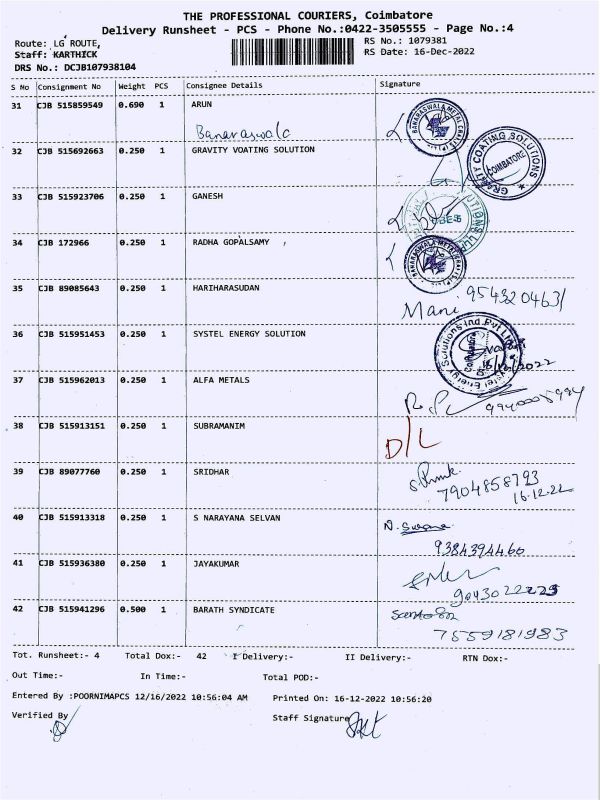 THE PROFESSIONAL COURIERS, Coimbatore
Delivery Runsheet - PCS - Phone No.:0422-3505555 - Page No.:4
Route: LG ROUTE,
Staff: KARTHICK
DRS No.: DCJB107938104
RS No.: 1079381
RS Date: 16-Dec-2022
S No Consignment No Weight PCS Consignee Details Signature
31 CJB 515859549 0.690 1 ARUN
BANARASWALA METAL
32 CJB 515692663 0.250 1 GRAVITY VOATING SOLUTION
GRAVITY COATING SOLUTIONS COIMBATORE
33 CJB 515923706 0.250 1 GANESH
34 CJB 172966 0.250 1 RADHA GOPALSAMY
BANARASWALA METAL
35 CJB 89085643 0.250 1 HARIHARASUDAN
Mani 9543204631
36 CJB 515951453 0.250 1 SYSTEL ENERGY SOLUTION
Systel Energy Solutions Ind Pvt Ltd
37 CJB 515962013 0.250 1 ALFA METALS
38 CJB 515913151 0.250 1 SUBRAMANIM
D/L
39 CJB 89077760 0.250 1 SRIDHAR
7904858793
16.12.22
40 CJB 515913318 0.250 1 S NARAYANA SELVAN
9384394460
41 CJB 515936380 0.250 1 JAYAKUMAR
9043022223
42 CJB 515941296 0.500 1 BARATH SYNDICATE
7559181983
Tot. Runsheet:- 4 Total Dox:- 42 I Delivery:- II Delivery:- RTN Dox:-
Out Time:- In Time:- Total POD:-
Entered By :POORNIMAPCS 12/16/2022 10:56:04 AM Printed On: 16-12-2022 10:56:20
Verified By Staff Signature